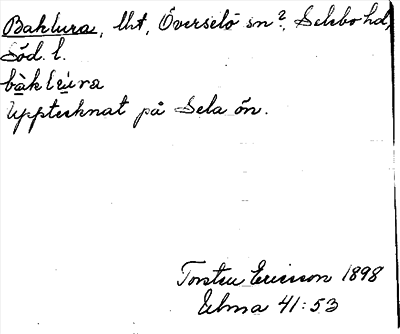 Baklura, lht, Överselö sn?, Selebo hd,
Söd. l.
bàklúra
Upptecknat på Sela ön.
Torsten Ericsson 1898
Elma 41:53